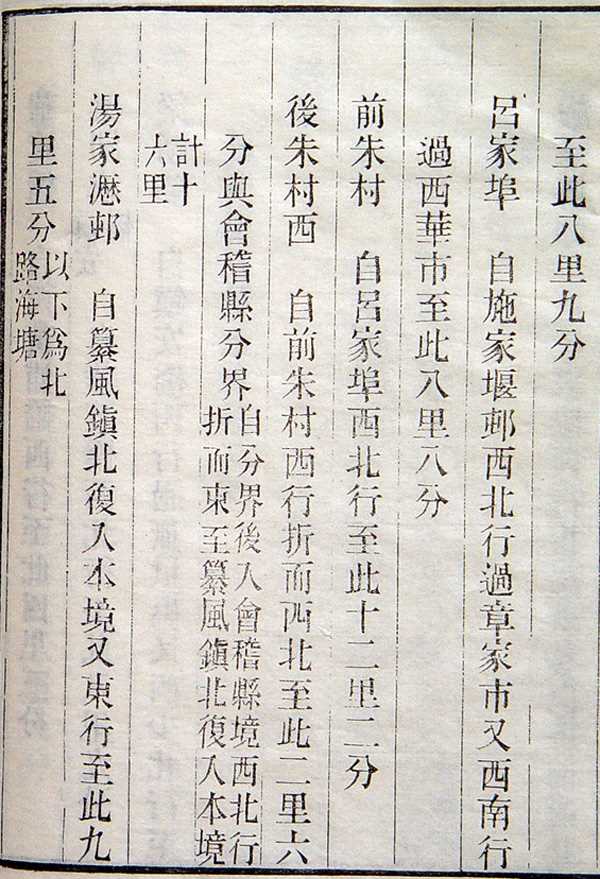 至此八里九分
呂家埠　自施家堰邨西北行過章家市又西南行
過西華市至此八里八分
前朱村　自呂家埠西北行至此十二里二分
後朱村西　自前朱村西行折而西北至此二里六
分與會稽縣分界自分界後入會稽縣境西北行
折而東至纂風鎮北復入本境
計十
六里
湯家瀝邨　自纂風鎮北復入本境又東行至此九
里五分以下爲北
路海塘